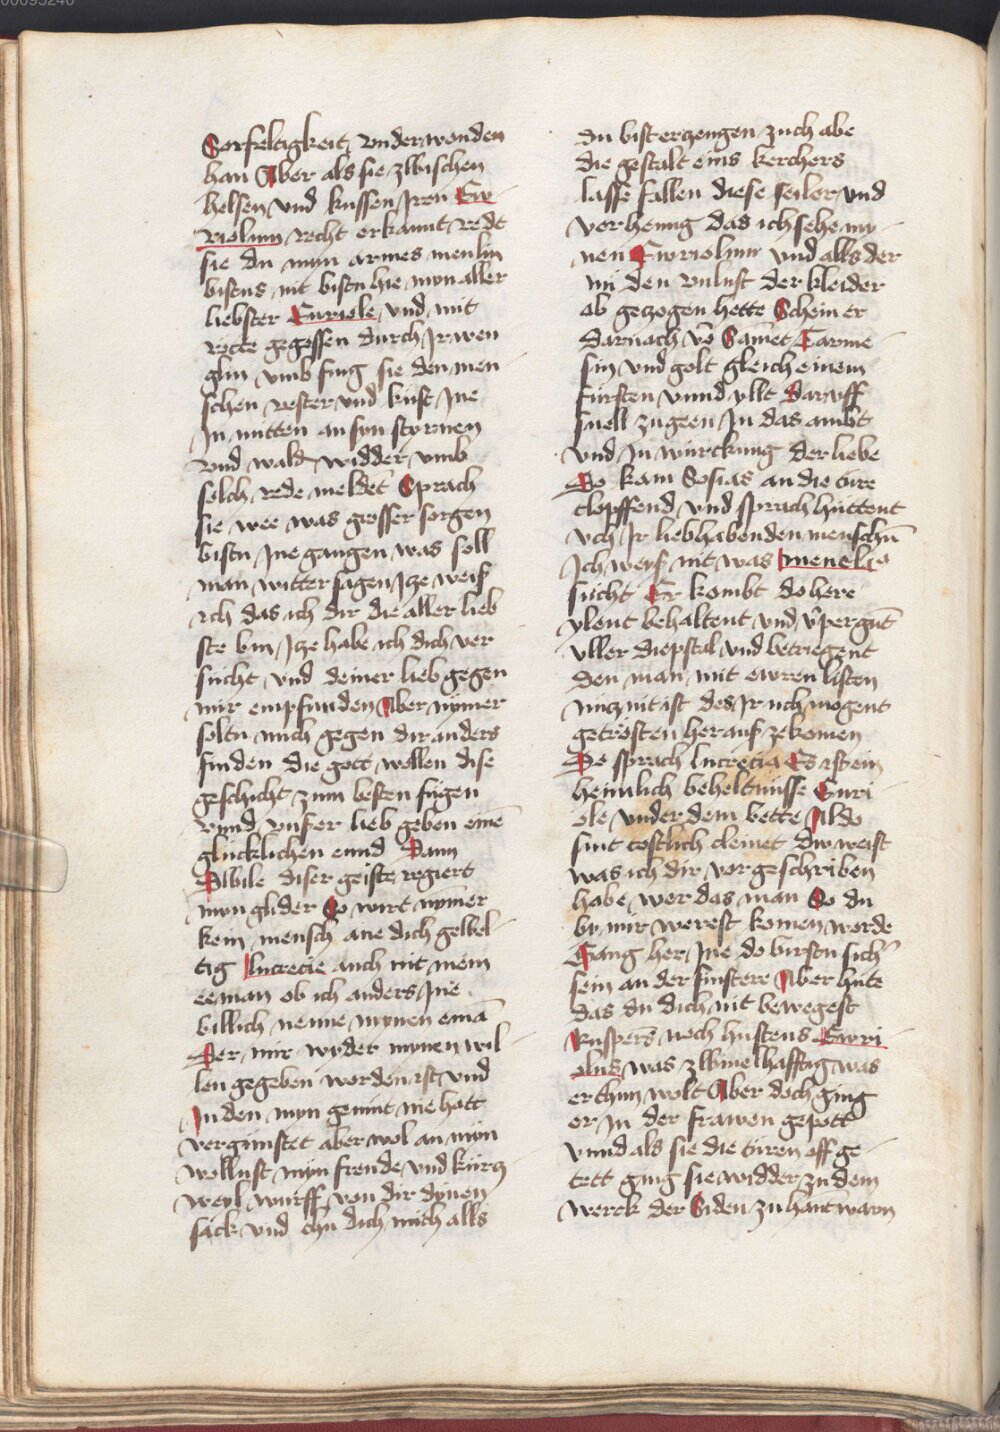 00095240
Sorfeltigkeit, vnderwonden
han Aber als sie zwischen
helsen vnd kussen Iren Ew
riolum recht erkannt redt
sie du myn armes menlin
bistus nit bistu hie myn aller
liebster Euriole vnd mit
rotte gegossen durch Ir wen
glin vmb fing sie den men
schen vester vnd kust Ine
In mitten an syn styrnen
vnd wald widder vmb
solch rede meldet Sprach
sie wee was grosser sorgen
bistu Ine gangen was soll
man witter sagen Ize weiß
ich das ich dir die aller lieb
ste bin Ize habe ich dich ver
sucht vnd deiner lieb gegen
mir empfunden Aber nÿmer
soltu mich gegen dir anders
finden die gott wollen dise
geschicht zum besten fugen
vnnd vnser lieb geben eine
glucklichen ennd Dann
Dwile diser geiste regiert
myn glider So wirt nymer
kein mensch ane dich gelbel
tig lucrecie auch nit mein
eeman ob ich anders Ine
billich nenne mynen emā
Der mir wyder mynen wil
len gegeben worden ist vnd
In den myn gemut nie hatt
vergunstet aber wol an myn
wollust myn freude vnd kurcz
weyl wurff von dir dynen
sack vnd thu dich mich alls
du bist erzeugen zuch abe
die gestalt eins kerchers
lasse fallen diese seiler vnd
verheng das ich sehe my
nen Ewriolum vnd alls der
nu den vnlust der kleider
ab gezogen hette Schein er
darnach vō Samet Carme
sin vnd golt gleich einem
fursten vnnd yllt Daruff
snell zu geen In das ambt
vnd In wurckung der liebe
Do kam Sosias an die ture
clopffend vnd sprach huttent
vch Ir liebhabenden menschū
Ich weyß nit was menela9
sucht Er kombt do here
ylent behaltent vnd v̄pergūt
vller diepstal vnd betriegent
den man mit ewren listen
nicz nit ist des Ir uch mogent
getrösten herauß ze komen
Do sprach lucrecia Es ist ein
heimlich beheltnusse Euri
ole vnder dem bette Aldo
sint costlich cleinet Dw weist
was ich dir vorgeschriben
habe wer das man So du
by mir werest komen werde
Gang her Ine do birstu sich'
sein an der finstere Aber hute
das du dich nit bewegest
Ruspers noch hustens Ewri
olus was zwiuelhafftig was
er thun wolt Aber doch ging
er In der frawen gepott
vnnd als sie die turen off ge
tett ging sie widder zu dem
werck der Siden zu hant warn